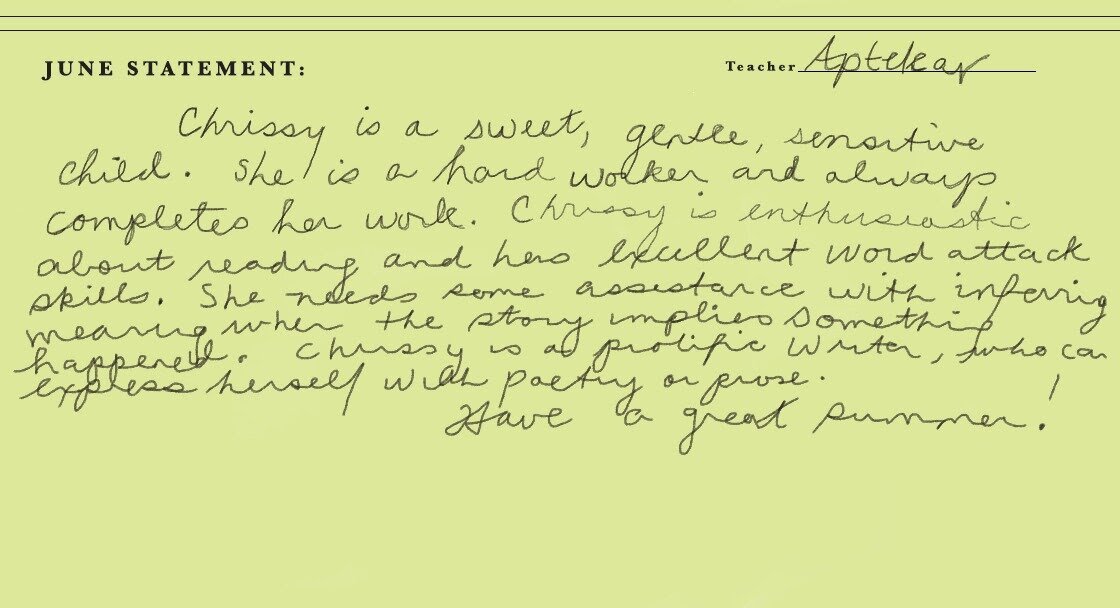 JUNE STATEMENT: Teacher Aptekar
Chrissy is a sweet, gentle, sensitive
child. She is a hard worker and always
completes her work. Chrissy is enthusiastic
about reading and has excellent word attack
skills. She needs some assistance with inferring
meaning when the story implies something
happened. Chrissy is a prolific writer, who can
express herself with poetry or prose.
Have a great summer!